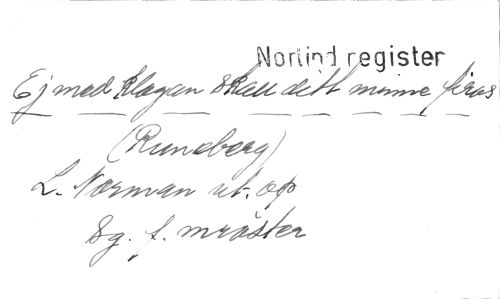 Nortind register
Ej med klagan skall ditt minne firas
(Runeberg)
L. Norman ut. op
Sg. f. mröster